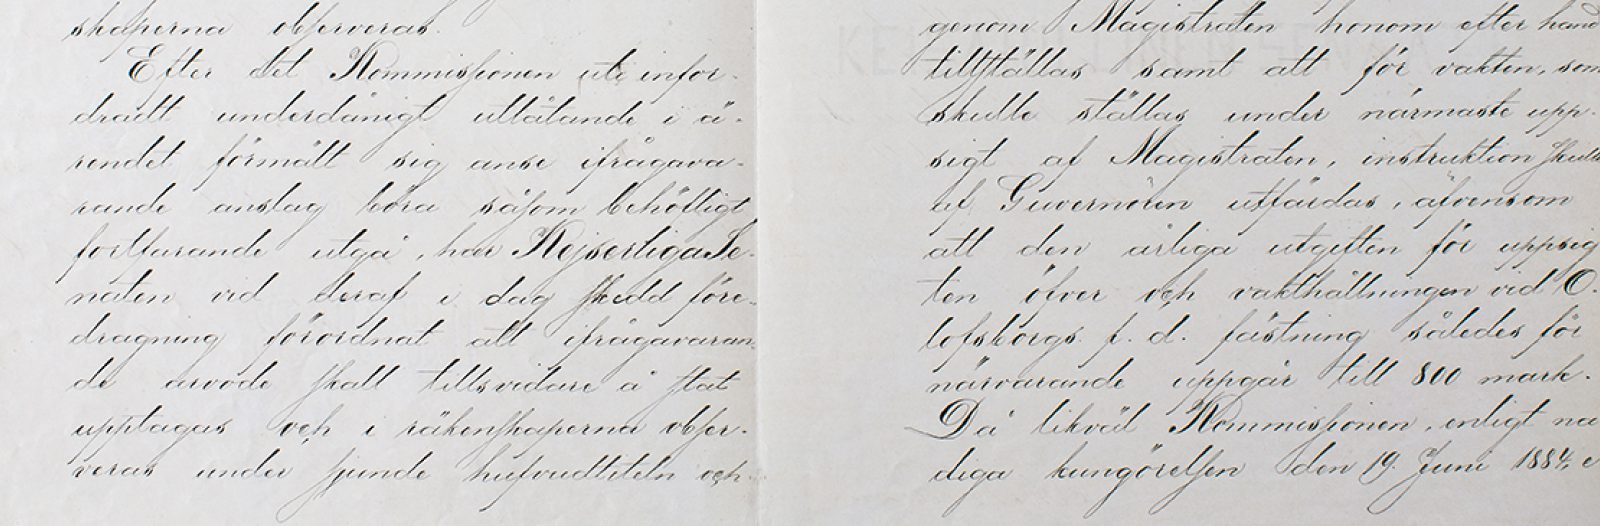 skaperna observeras.
Efter det Kommissionen uti infor-
dradt underdånigt utlåtande i ä-
rendet förmält sig anse ifrågava-
rande anslag böra såsom behöfligt
fortfarande utgå, har Kejserliga Se-
naten vid deraf i dag skedd före-
dragning förordnat att ifrågavaran-
de arvode skall tillsvidare å stat
upptagas och i räkenskaperna obser-
veras under sjunde hufvudtiteln och
genom Magistraten honom efter hand
tillställas samt att för vakten, som
skulle ställas under närmaste upp-
sigt af Magistraten, instruktion skulle
af Guvernören utfärdas, äfvensom
att den årliga utgiften för uppsig
ten öfver och vakthållningen vid O-
lofsborgs f. d. fästning således för
närvarande uppgår till 800 mark.
Då likväl Kommissionen, enligt nå
diga kungörelsen den 19. Juni 1884, e